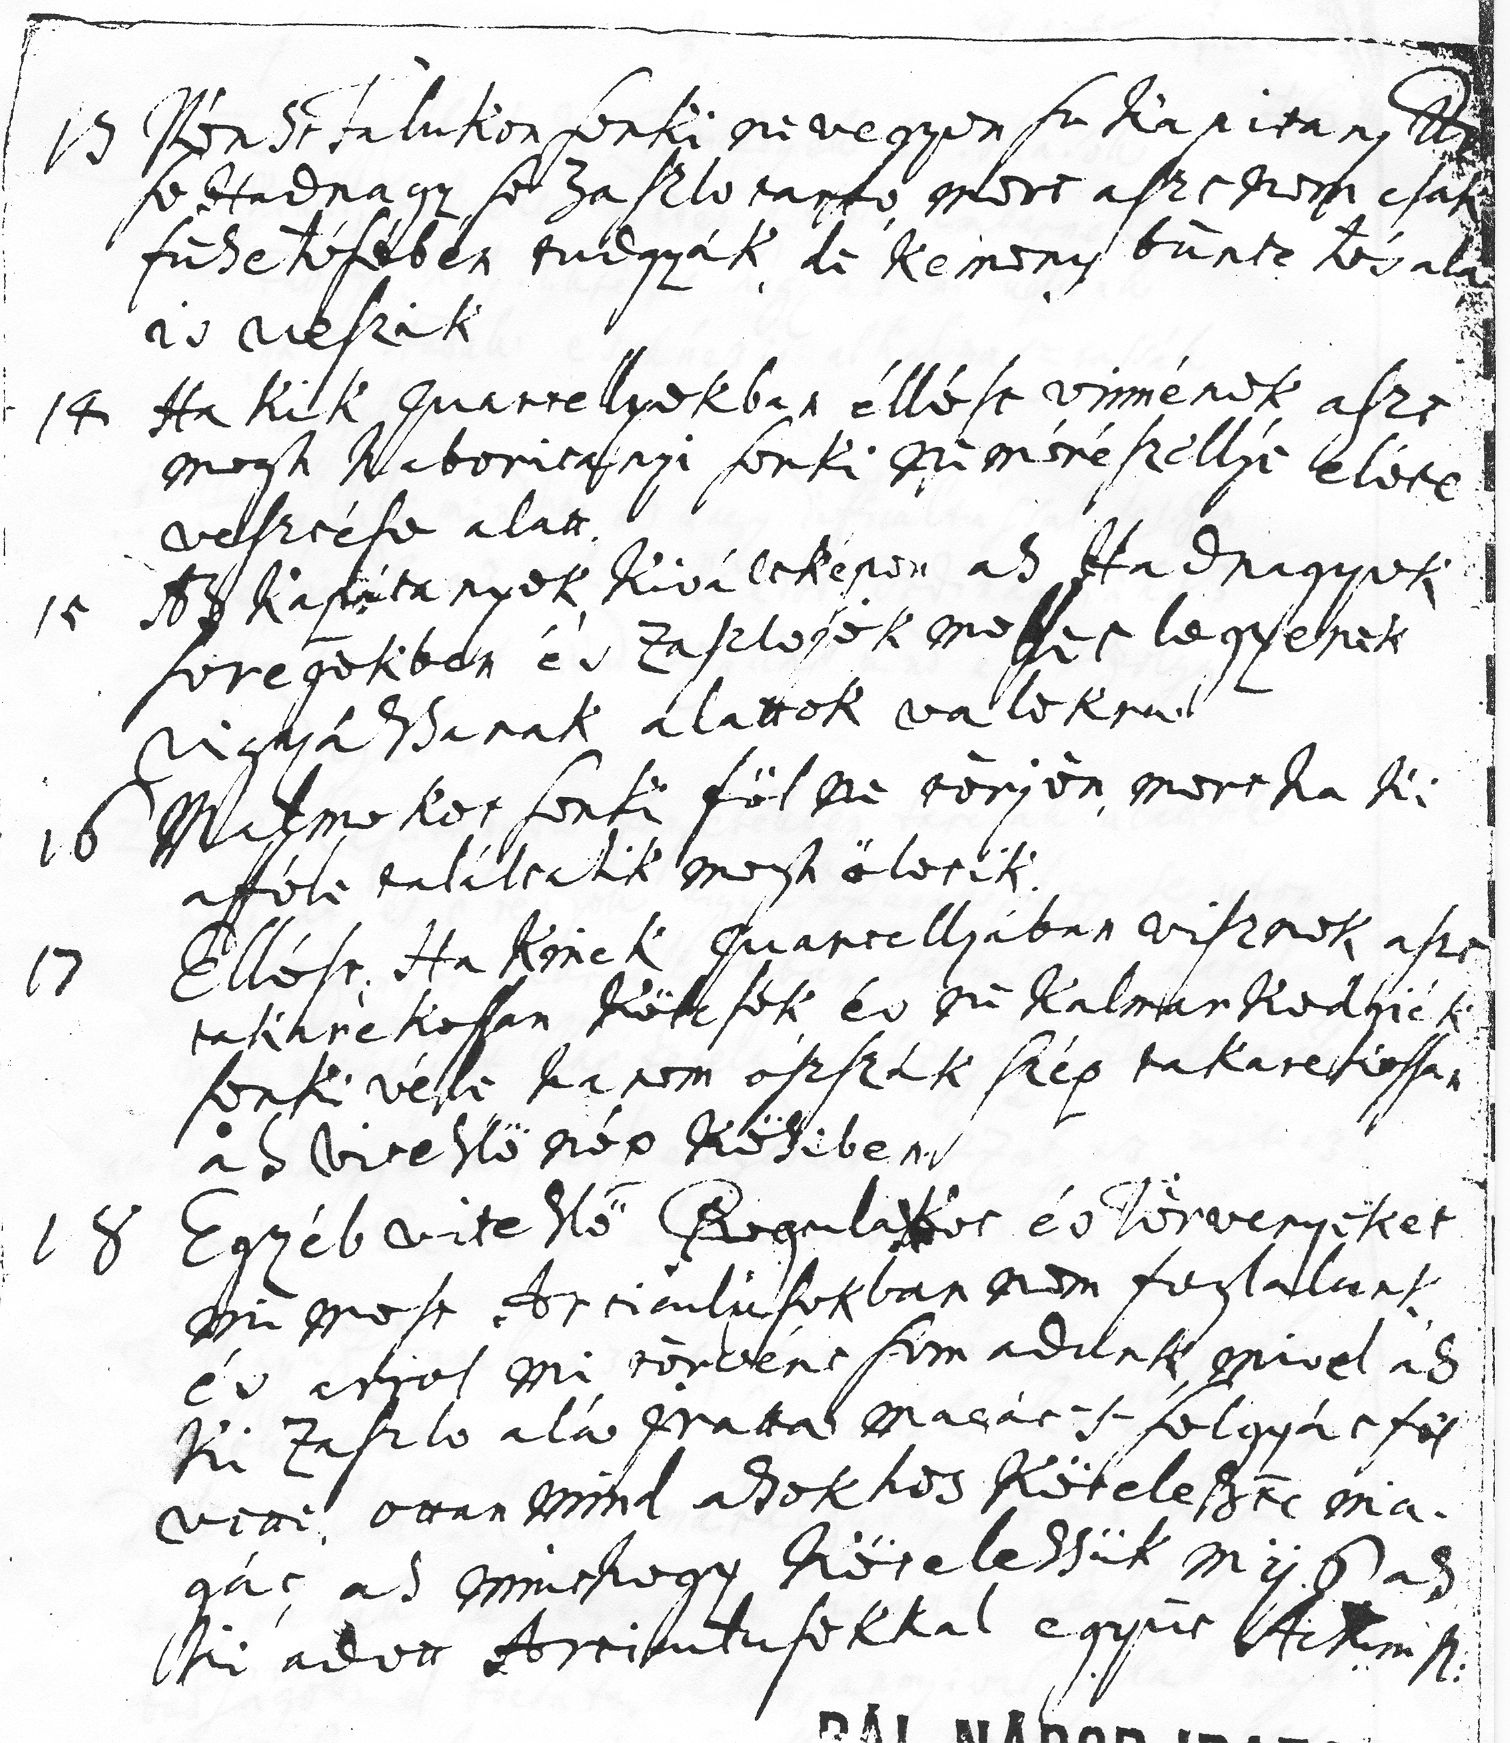 13 Pénzt falukon senki ne vegyen se Kapitany
se Hadnagy se Zaszlo tarto, mert aszt nem csak
füzetésében tudgyák, de kemeny büntetés ala
is veszik
14 Ha kik quartellyokban éllést vinnének aszt
megh haboritanyi senki ne mérészellye eléte
vesztése alatt.
15 Az Kapitanyok, kiváltképen az Hadnagyok
seregekben és Zaszlojok mellet legyenek
vigyázzanak alattok valokrul
16 Malmokot senki föl ne törjön, mert ha ki
afféle találtatik megh öletik.
17 Éllést, Ha kinek quartellyában visznek, aszt
takarékossan költsék, és ne kalmarkodgyék
senki véle hanem oszszák szép takarekossan
az vitezlö nép köziben
18 Egyéb vitezlö Regulakot és Törvenyeket
mi most Articulusokban nem foglalunk,
és arrol mi törvént sem adunk, mivel az
ki Zaszlo alá iratta magát s felgyát föl
vette, ottan mind azokhoz kötelezte ma-
gát, az minthogy kötelezzük mij is az
ki adott Articulusokkal együt
PÁL NÁDOR